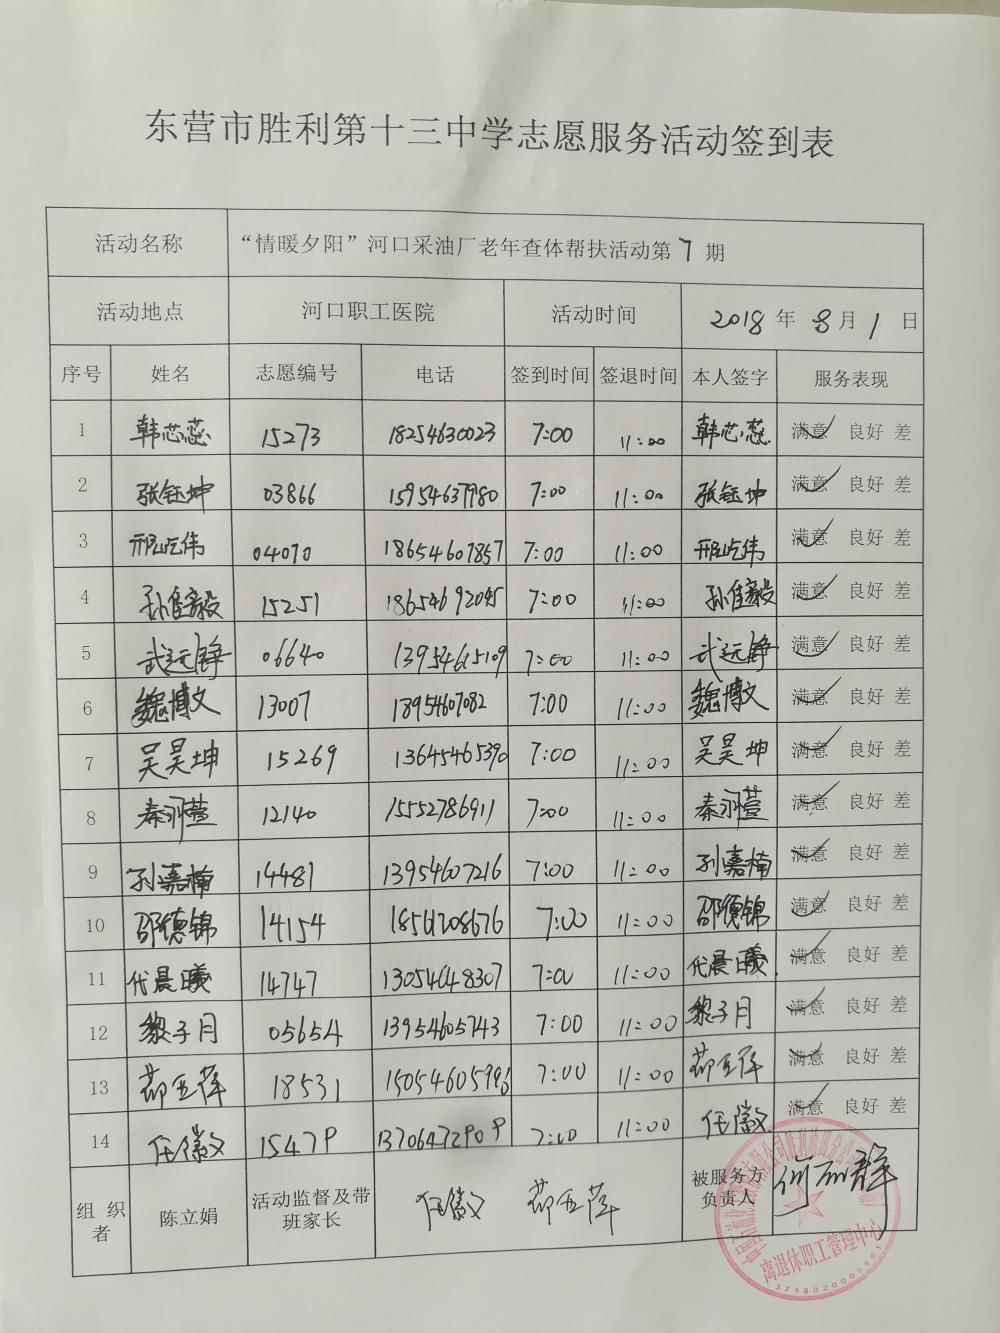 东营市胜利第十三中学志愿服务活动签到表
活动名称 “情暖夕阳”河口采油厂老年查体帮扶活动第7期
活动地点 河口职工医院 活动时间 2018年8月1日
序号 姓名 志愿编号 电话 签到时间 签退时间 本人签字 服务表现
1 韩芯蕊 15273 18254630023 7:00 11:00 韩芯蕊 满意 良好 差
2 张钰坤 03866 15954637980 7:00 11:00 张钰坤 满意 良好 差
3 邢屹伟 04070 18654607857 7:00 11:00 邢屹伟 满意 良好 差
4 孙佳毅 15251 18654692045 7:00 11:00 孙佳毅 满意 良好 差
5 武远铮 06640 13954615109 7:00 11:00 武远铮 满意 良好 差
6 魏博文 13007 18954607082 7:00 11:00 魏博文 满意 良好 差
7 吴昊坤 15269 13645465390 7:00 11:00 吴昊坤 满意 良好 差
8 秦羽萱 12140 15552786911 7:00 11:00 秦羽萱 满意 良好 差
9 孙嘉楠 14481 13954607216 7:00 11:00 孙嘉楠 满意 良好 差
10 邵德锦 14154 18561208676 7:00 11:00 邵德锦 满意 良好 差
11 代晨曦 14747 13054648307 7:00 11:00 代晨曦 满意 良好 差
12 黎子月 05654 13954605743 7:00 11:00 黎子月 满意 良好 差
13 18531 7:00 11:00 满意 良好 差
14 任徽文 15479 13706472909 7:00 11:00 任徽文 满意 良好 差
组织者 陈立娟 活动监督及带班家长 任徽文 被服务方负责人
离退休职工管理中心
3718020000661